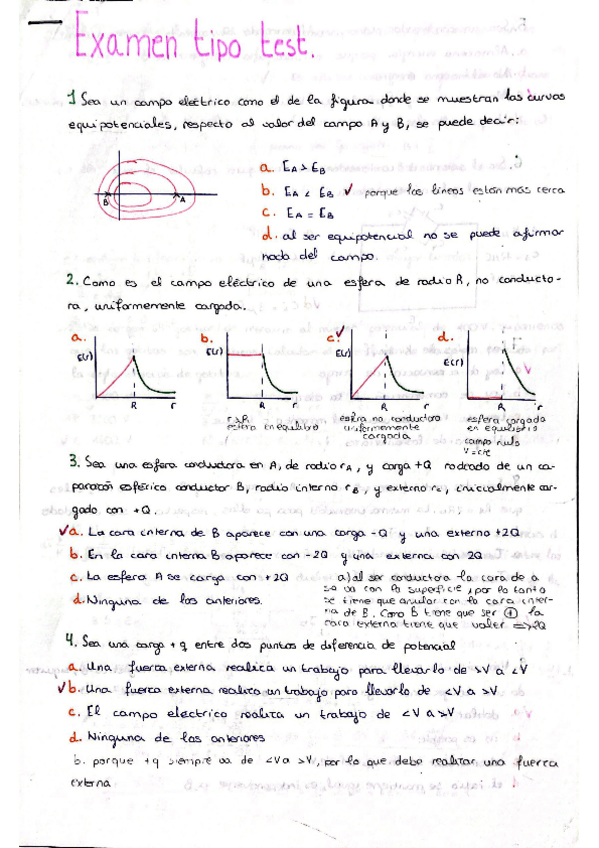 Examen tipo test.
1 Sea un campo eléctrico como el de la figura donde se muestran las curvas
equipotenciales, respecto al valor del campo A y B, se puede decir:
B A
a. EA > EB
b. EA < EB ✓ porque las lineas están más cerca
c. EA = EB
d. al ser equipotencial no se puede afirmar
nada del campo.
2. Como es el campo eléctrico de una esfera de radio R, no conducto-
ra, uniformemente cargada.
a. b. c. ✓ d.
E(r) E(r) E(r) E(r)
R r R r R r R r
esfera no conductora
uniformemente
cargada
esfera cargada
en equilibrio
campo nulo
V=cte
3. Sea una esfera conductora en A, de radio rA, y carga +Q rodeado de un ca-
parazón esférico conductor B, radio interno rB, y externo rc, inicialmente car-
gado con +Q.
✓a. La cara interna de B aparece con una carga -Q y una externa +2Q
b. En la cara interna B aparece con -2Q y una externa con 2Q
c. La esfera A se carga con +2Q
d. Ninguna de las anteriores.
a) al ser conductora la cara de a
se va con la superficie, por lo tanto
se tiene que anular con la cara inter-
na de B. Como B tiene que ser + la
cara externa tiene que valer => 2Q
4. Sea una carga +q entre dos puntos de diferencia de potencial
a. Una fuerza externa realiza un trabajo para llevarlo de >V a <V
✓b. Una fuerza externa realiza un trabajo para llevarlo de <V a >V
c. El campo electrico realiza un trabajo de <V a >V
d. Ninguna de las anteriores
b. porque +q siempre va de <V a >V, por lo que debe realizar una fuerza
externa